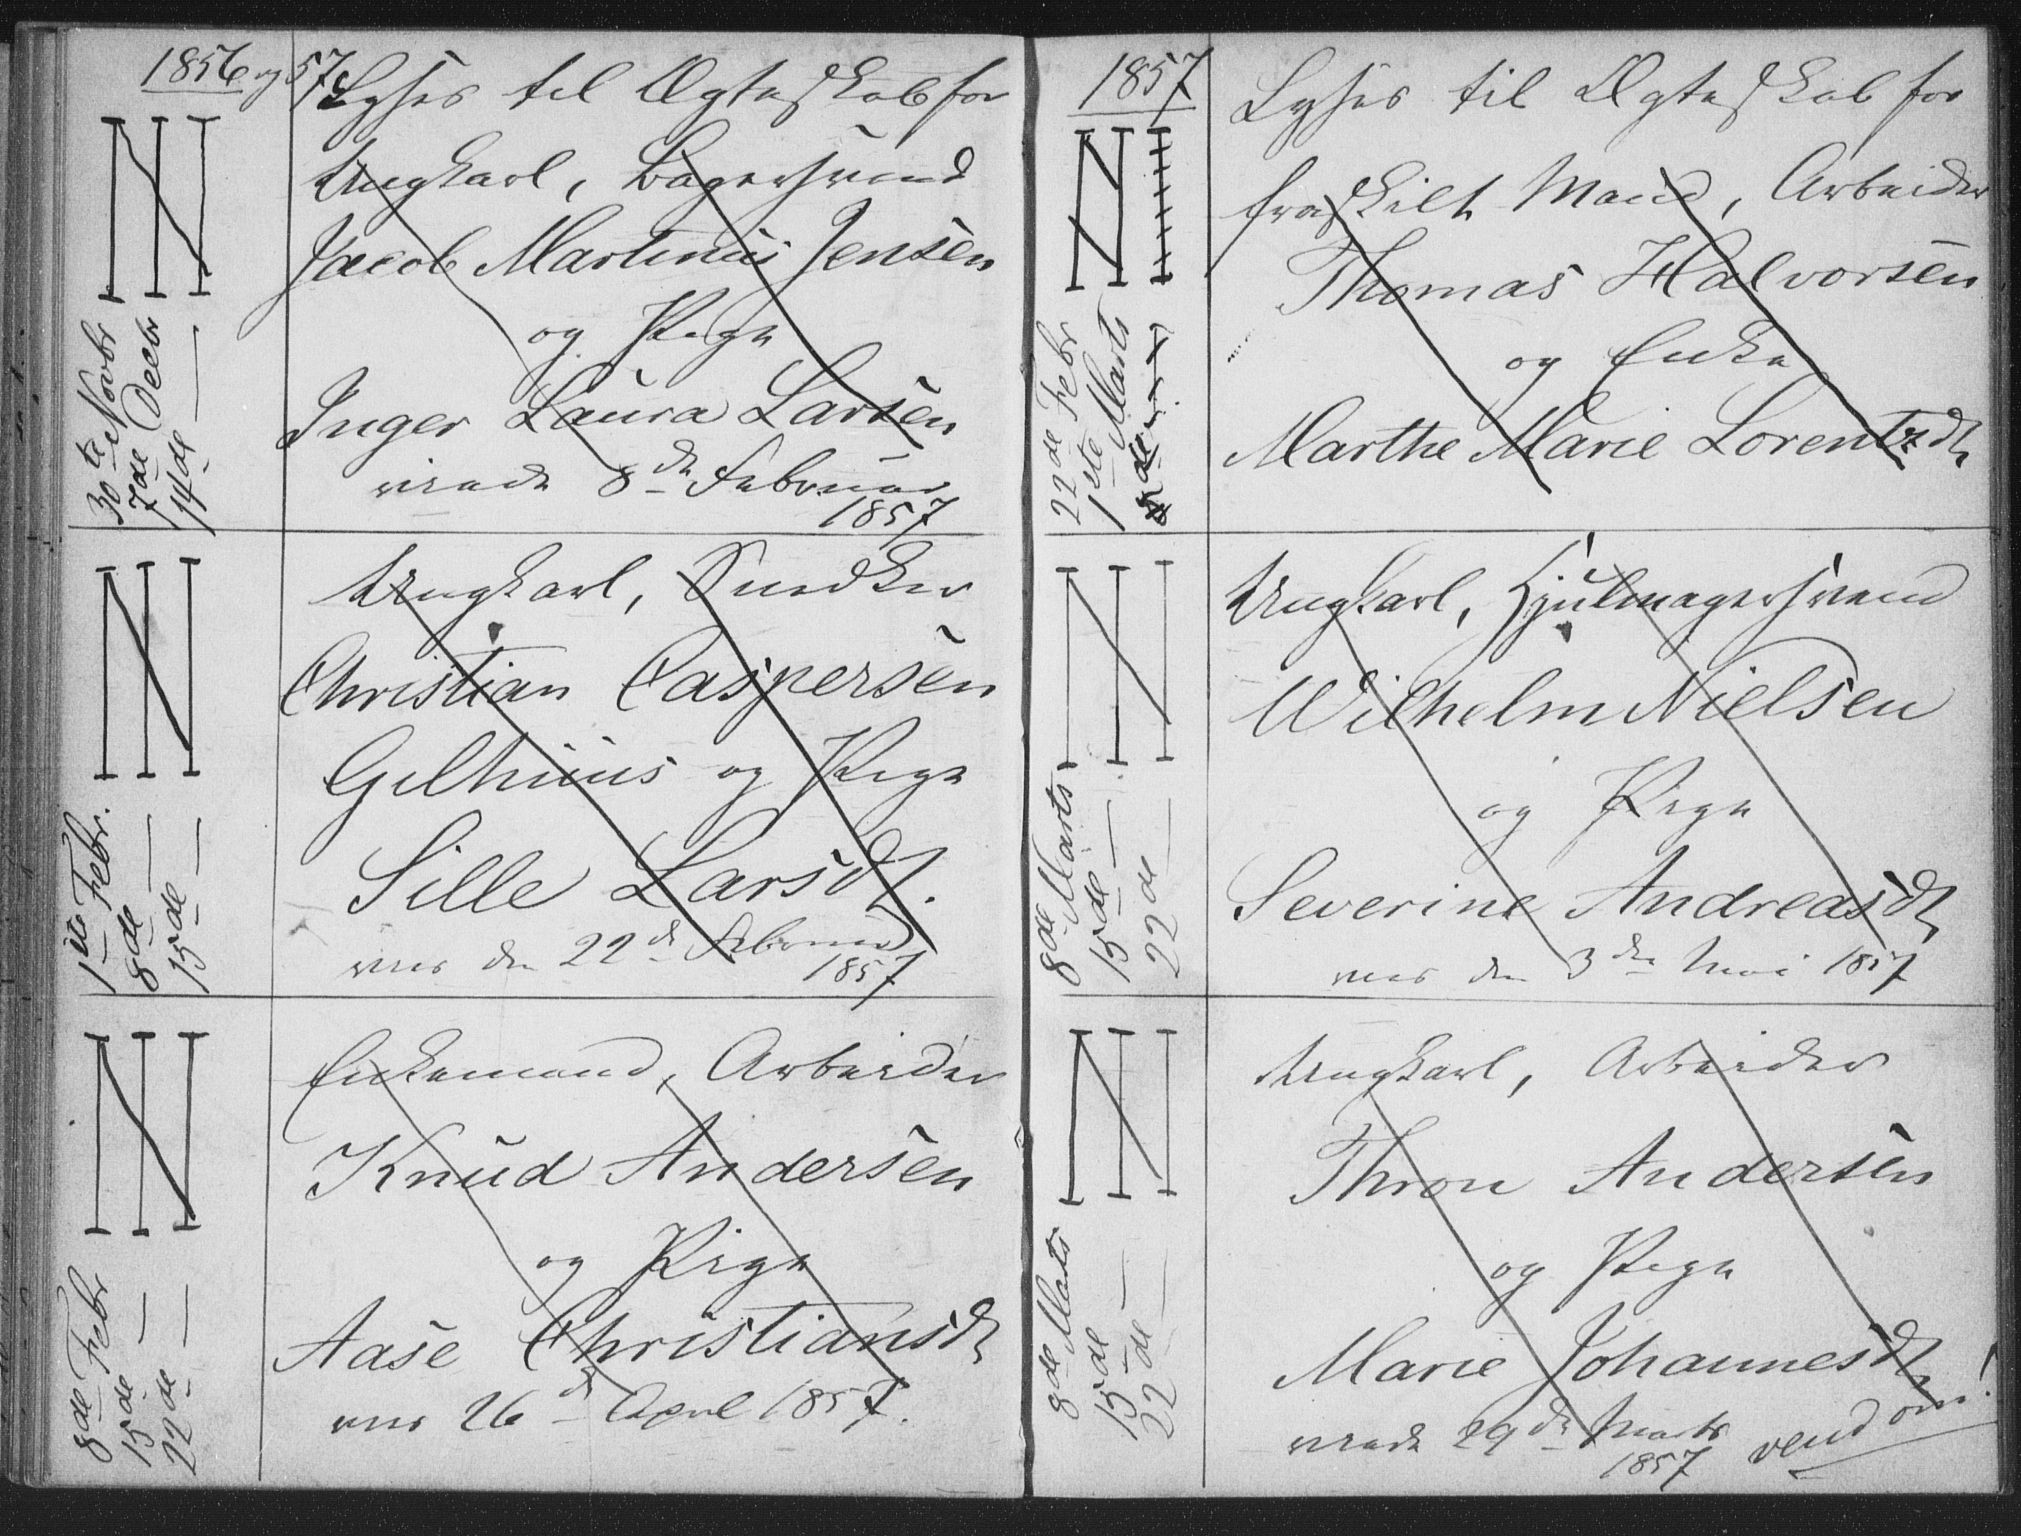 1856 og 57
Lyses til Ægteskab for
Ungkarl, Bagersvend
Jacob Martinus Jensen
og Pige
Inger Laura Larsen
viede 8de Februar
1857
30te Novbr
7de Decbr
14de —
Ungkarl, Snedker
Christian Caspersen
Gelhuus og Pige
Sille Larsdt.
viet den 22de Februar
1857
1ste Febr.
8de —
15de —
Enkemand, Arbeider
Knud Andersen
og Pige
Aase Christiansdt
viet 26de April 1857.
8de Febr
15de —
22de —
1857
Lyses til Ægteskab for
fraskilt Mand, Arbeider
Thomas Halvorsen
og Enke
Marthe Marie Lorentzdt
22de Febr
1ste Marts
8de
Ungkarl, Hjulmagersvend
Wilhelm Nielsen
og Pige
Severine Andreasdt
viet den 3die Mai 1857
8de Marts
15de —
22de —
Ungkarl, Arbeider
Thron Andersen
og Pige
Marie Johannesdt
viede 29de Marts
1857
vend om!
8de Marts
15de —
22de —